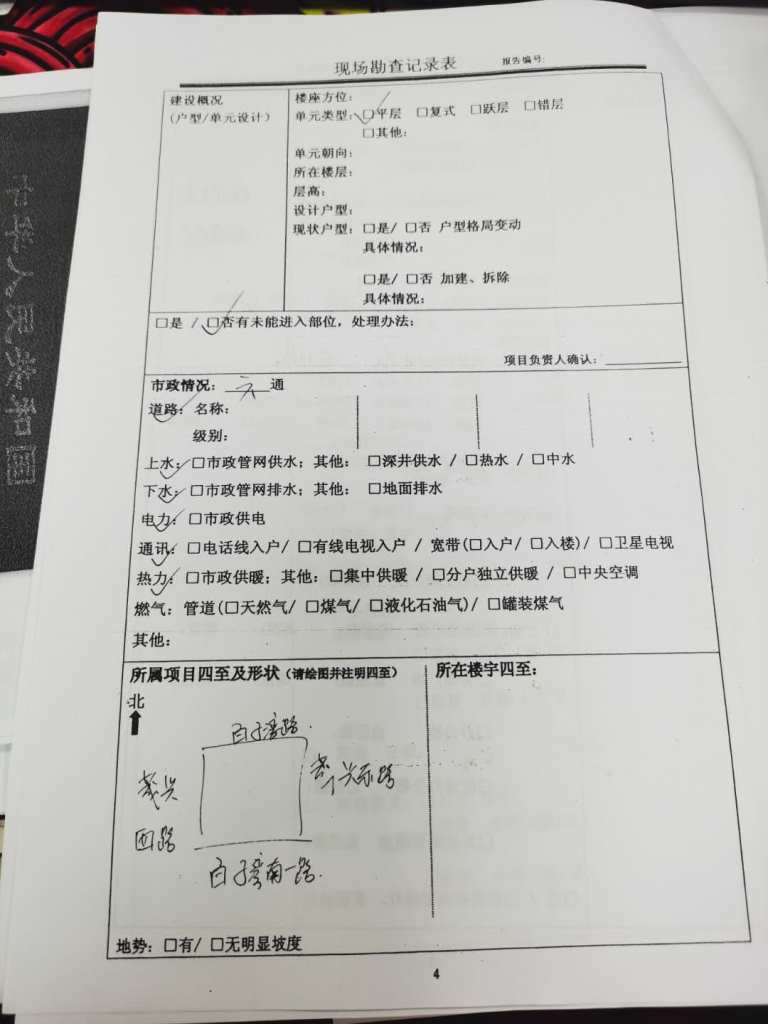 现场勘查记录表 报告编号:
建设概况
(户型/单元设计)
楼座方位:
单元类型: □平层 □复式 □跃层 □错层
□其他:
单元朝向:
所在楼层:
层高:
设计户型:
现状户型: □是/ □否 户型格局变动
具体情况:
□是/ □否 加建、拆除
具体情况:
□是 / □否有未能进入部位, 处理办法:
项目负责人确认:
市政情况: 六 通
道路: 名称:
级别:
上水: □市政管网供水; 其他: □深井供水 / □热水 / □中水
下水: □市政管网排水; 其他: □地面排水
电力: □市政供电
通讯: □电话线入户/ □有线电视入户 / 宽带(□入户/ □入楼)/ □卫星电视
热力: □市政供暖; 其他: □集中供暖 / □分户独立供暖 / □中央空调
燃气: 管道(□天然气/ □煤气/ □液化石油气)/ □罐装煤气
其他:
所属项目四至及形状 (请绘图并注明四至)
所在楼宇四至:
北
百子湾路.
兴东路
兴
西路
百子湾南一路.
地势: □有/ □无明显坡度
4
中华人民共和国